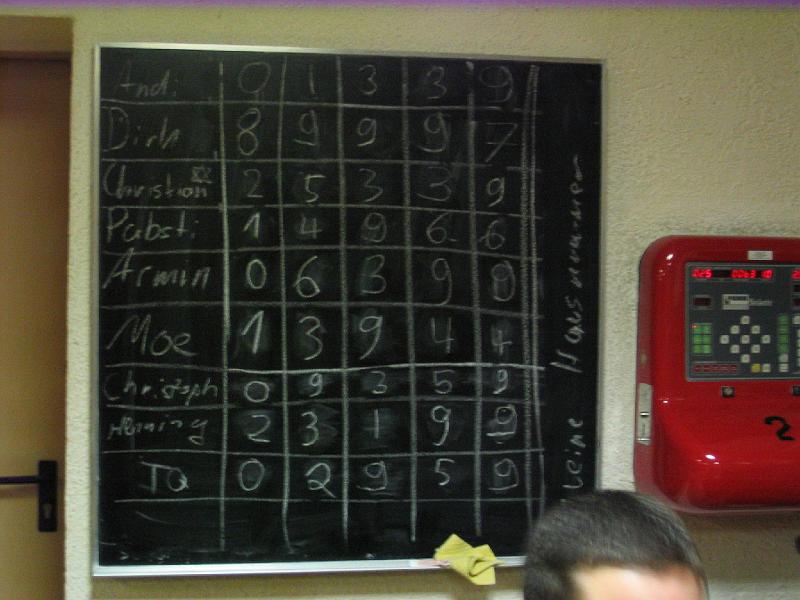 Andi 0 1 3 3 9
Dirk 8 9 9 9 7
Christian 2 5 3 3 9
Pabsti 1 4 9 6 6
Armin 0 6 3 9 0
Moe 1 3 9 4 4
Christoph 0 9 3 5 9
Henning 2 3 1 9 9
JQ 0 2 9 5 9
kleine Hausnummer
2